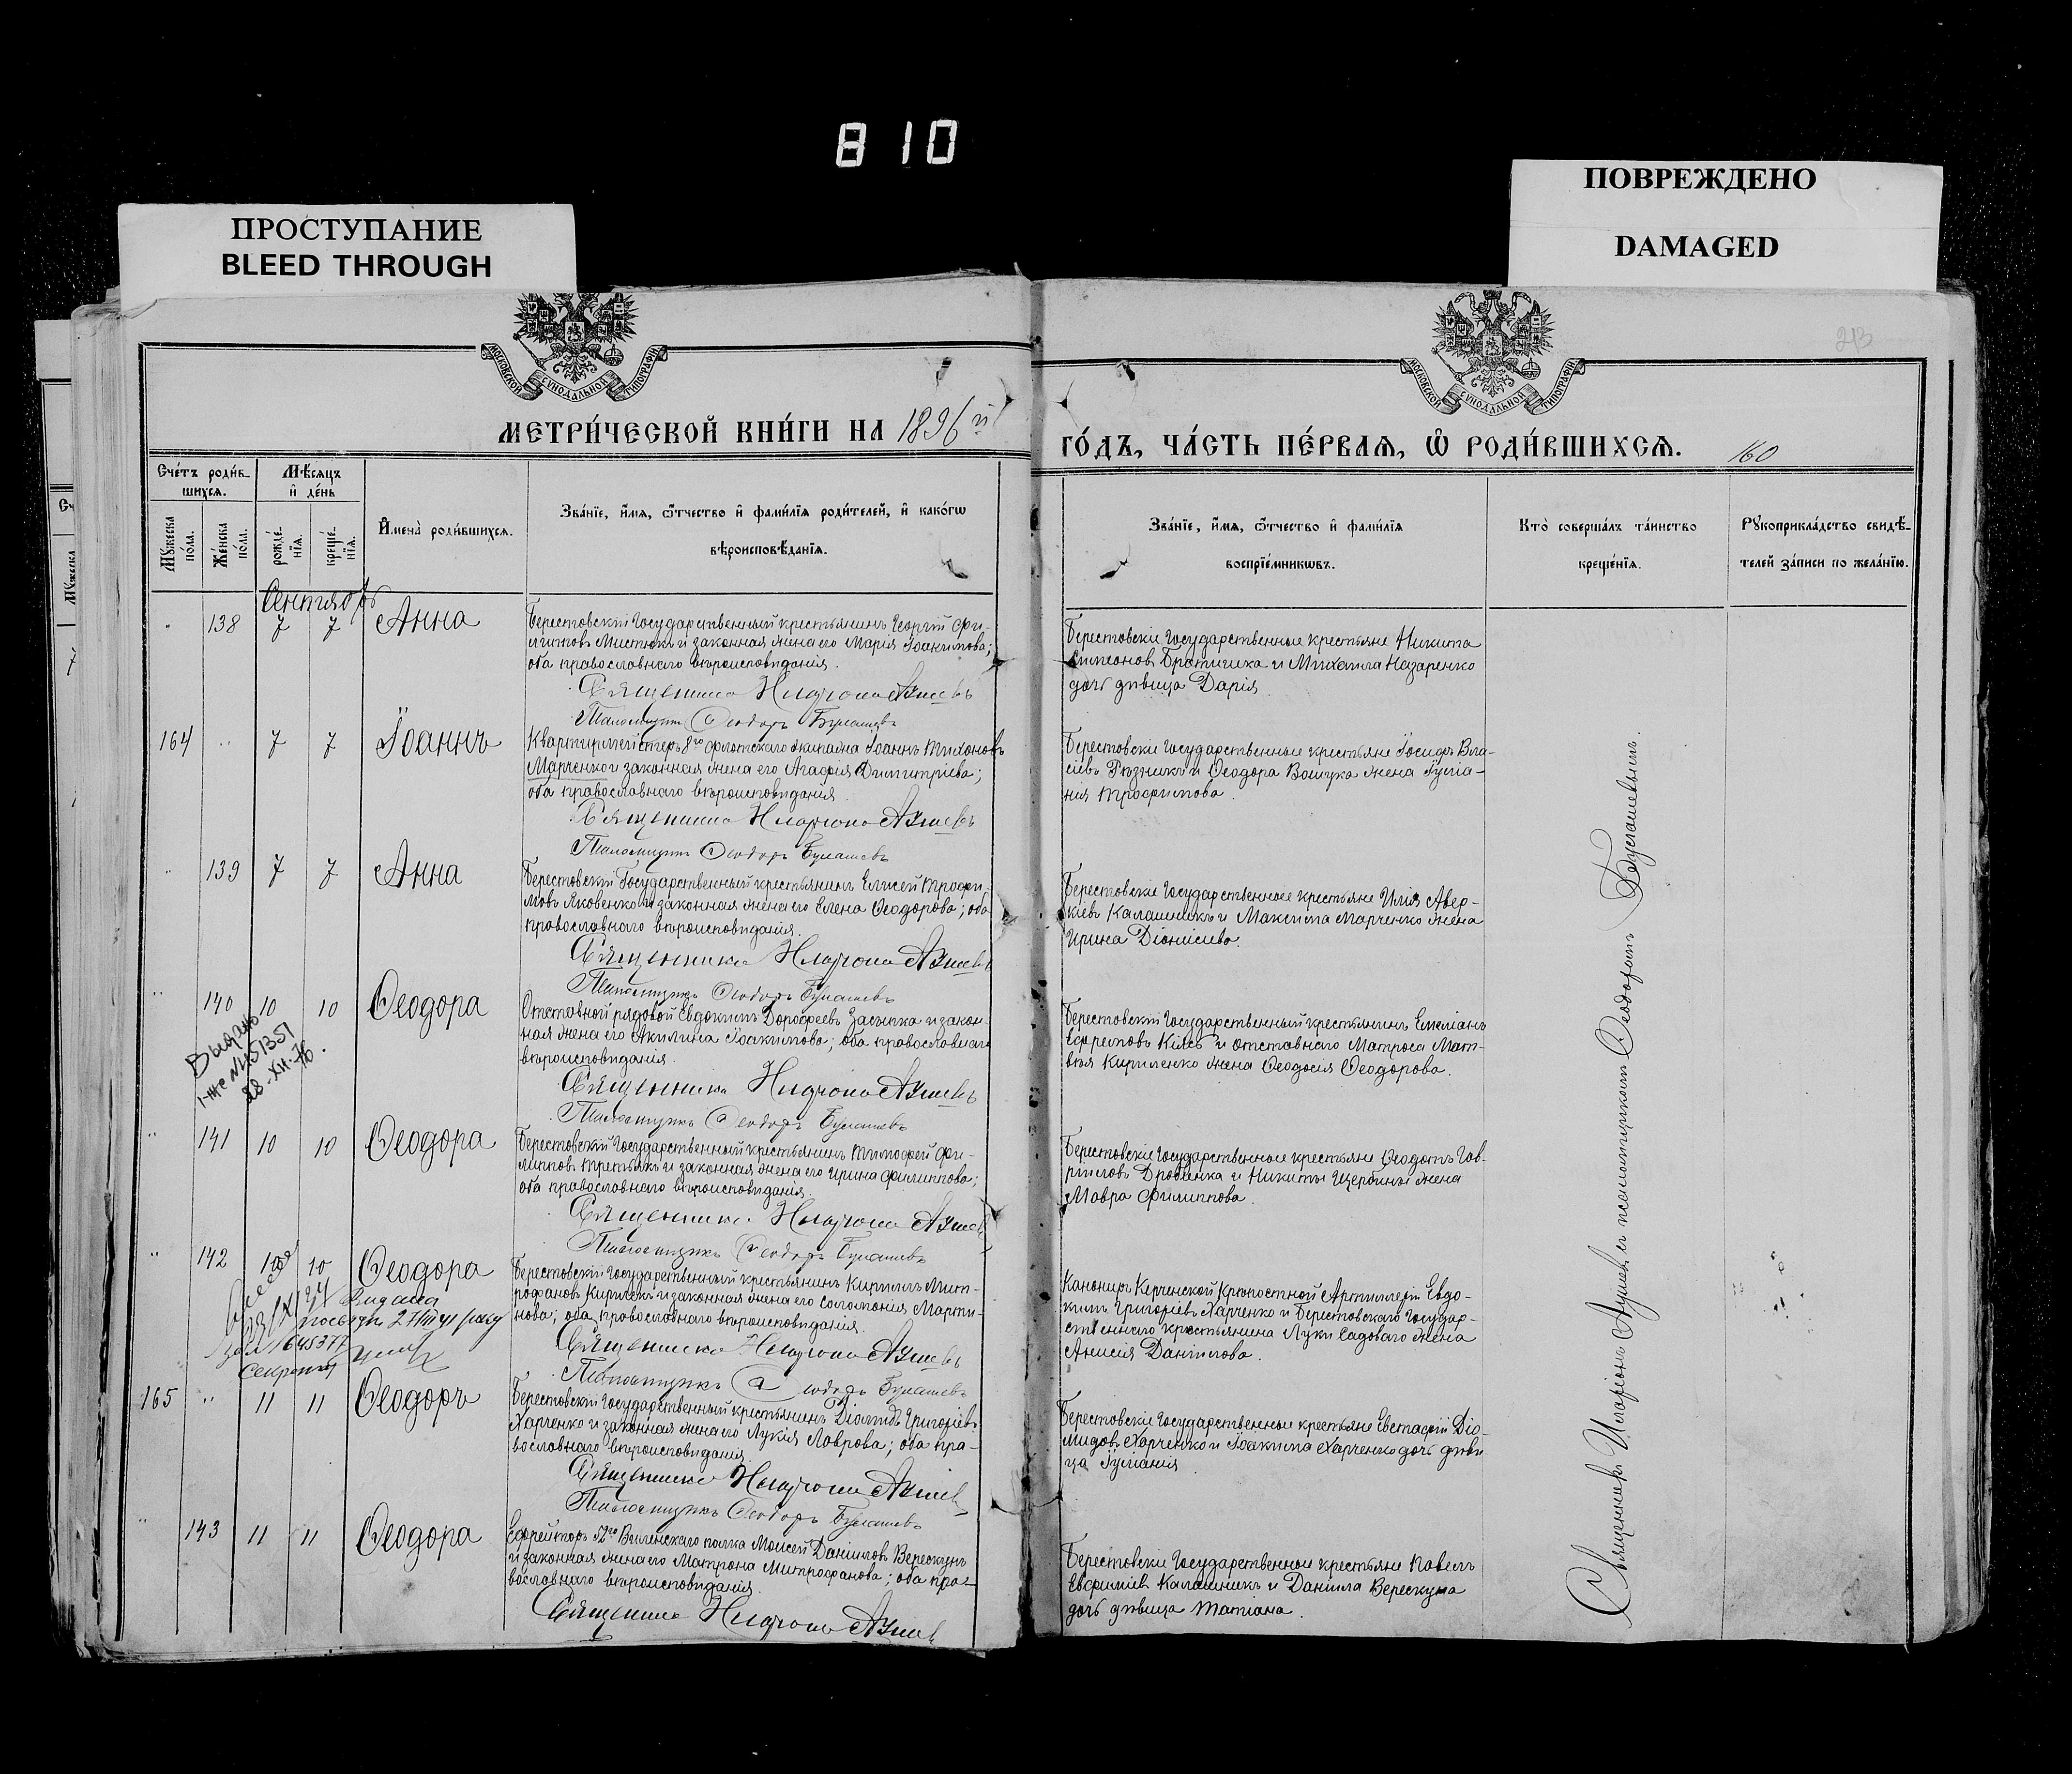 810
ПРОСТУПАНИЕ
BLEED THROUGH
ПОВРЕЖДЕНО
DAMAGED
МОСКОВСКОЙ СѴНОДАЛЬНОЙ ТИПОГРАФІИ
МОСКОВСКОЙ СѴНОДАЛЬНОЙ ТИПОГРАФІИ
213
МЕТРИ́ЧЕСКОЙ КНИ́ГИ НА 1896 й
ГО́ДЪ, ЧА́СТЬ ПЕ́РВАЯ, Ѡ РОДИ́ВШИХСЯ. 160
Сче́тъ роди́в-
шихся.
Мѣ́сяцъ
и де́нь
Мꙋжеска по́ла.
Же́нска по́ла.
рожде́-
нїя.
креще́-
нїя.
И҆мена̀ роди́вшихся.
Зва́нїе, и҆́мя, ѻ҆́тчество и҆ фами́лїя роди́телей, и҆ како́гѡ
вѣроисповѣ́данїя.
Зва́нїе, и҆́мя, ѻ҆́тчество и҆ фами́лїя
воспрїе́мникѡвъ.
Кто̀ соверша́лъ та́инство
креще́нїя.
Рꙋкоприкла́дство свидѣ́-
телей за́писи по жела́нїю.
Сентябрь
138 7 7 Анна
Берестовскій Государственный крестьянинъ Георгій Фи-
липповъ и законная жена его Марія Іоакимова;
оба православнаго вѣроисповѣданія.
Священникъ Иларіонъ
Псаломщикъ Ѳеодоръ
Берестовскіе Государственные крестьяне Никита
Симеоновъ и Михаила Назаренко
дочь дѣвица Дарія.
164 " 7 7 Іоаннъ
Квартирмейстеръ 8го флотскаго экипажа Іоаннъ Тихоновъ
Марченко и законная жена его Агафія Димитріева;
оба православнаго вѣроисповѣданія.
Священникъ Иларіонъ
Псаломщикъ Ѳеодоръ
Берестовскіе Государственные крестьяне Іосифъ Вла-
сіевъ Рѣзникъ и Ѳеодора жена Іулiа-
нія Трофимова.
" 139 7 7 Анна
Берестовскій Государственный крестьянинъ Елисей Трофи-
мовъ Яковенко и законная жена его Елена Ѳеодорова; оба
православнаго вѣроисповѣданія.
Священникъ Иларіонъ
Псаломщикъ Ѳеодоръ
Берестовскіе Государственные крестьяне Илія Авер-
кіевъ Калашникъ и Максима Марченко жена
Ирина Діонисіева.
" 140 10 10 Ѳеодора
Отставной рядовой Евдокимъ Дороѳеевъ Засыпка и закон-
ная жена его Акилина Іоакимова; оба православнаго
вѣроисповѣданія.
Священникъ Иларіонъ
Псаломщикъ Ѳеодоръ
Берестовскій Государственный крестьянинъ Емеліанъ
Ефремовъ и отставнаго Матроса Мат-
вѣя Кириленко жена Ѳеодосія Ѳеодорова.
Выдано
28-XII-76.
" 141 10 10 Ѳеодора
Берестовскій Государственный крестьянинъ Тимофей Фи-
липповъ Третьякъ и законная жена его Ирина Филиппова;
оба православнаго вѣроисповѣданія.
Священникъ Иларіонъ
Псаломщикъ Ѳеодоръ
Берестовскіе Государственные крестьяне Ѳеодотъ Гав-
риловъ и Никиты Щербины жена
Мавра Филиппова.
" 142 10 10 Ѳеодора
Берестовскій Государственный крестьянинъ Кириллъ Мит-
рофановъ и законная жена его Соломонія Марти-
нова; оба православнаго вѣроисповѣданія.
Священникъ Иларіонъ
Псаломщикъ Ѳеодоръ
Канониръ Керченской Крѣпостной Артиллеріи Евдо-
кимъ Григоріевъ Харченко и Берестовскаго Государ-
ственнаго крестьянина Луки Садоваго жена
Анисія Даніилова.
165 " 11 11 Ѳеодоръ
Берестовскій Государственный крестьянинъ Діомидъ Григоріевъ
Харченко и законная жена его Лукія Лаврова; оба пра-
вославнаго вѣроисповѣданія.
Священникъ Иларіонъ
Псаломщикъ Ѳеодоръ
Берестовскіе Государственные крестьяне Евстафій Діо-
мидовъ Харченко и Іоакима Харченко дочь дѣви-
ца Іуліанія.
" 143 11 11 Ѳеодора
Ефрейторъ 52го Виленскаго полка Моисей Даніиловъ Верескунъ
и законная жена его Матрона Митрофанова; оба пра-
вославнаго вѣроисповѣданія.
Священникъ Иларіонъ
Берестовскіе Государственные крестьяне Павелъ
Евфиміевъ Калашникъ и Даніила Верескуна
дочь дѣвица Татіана.
Священникъ Иларіонъ съ псаломщикомъ Ѳеодоромъ